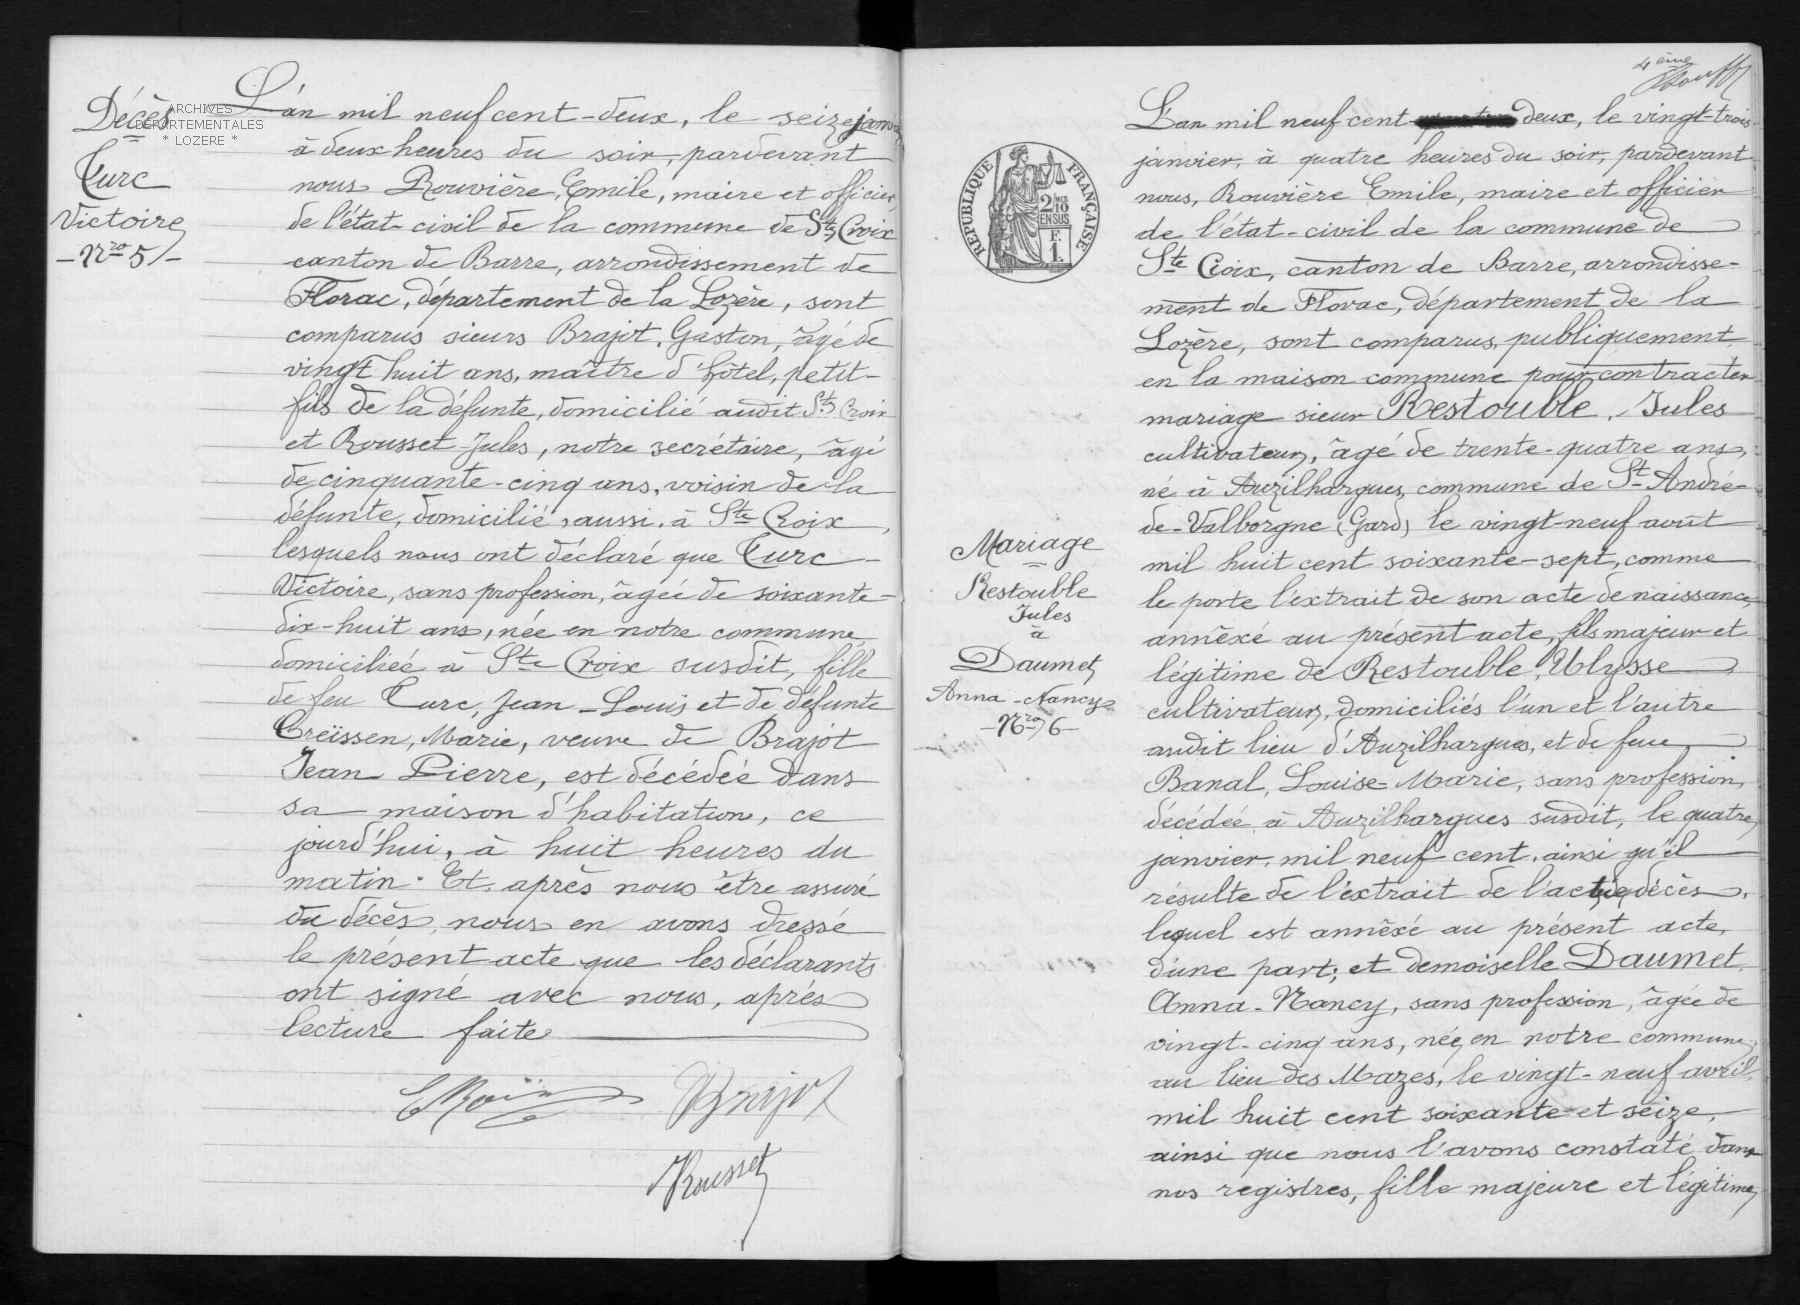 Décès
Turc
Victoire
- Nro 5 -
ARCHIVES
DEPARTEMENTALES
* LOZERE *
L'an mil neuf cent-deux, le seize janvier
à deux heures du soir, pardevant
nous Rouvière, Emile, maire et officier
de l'état-civil de la commune de Ste Croix
canton de Barre, arrondissement de
Florac, département de la Lozère, sont
comparus sieurs Brajot, Gaston, âgé de
vingt huit ans, maître d'hôtel, petit-
fils de la défunte, domicilié audit Ste Croix
et Rousset Jules, notre secrétaire, âgé
de cinquante-cinq ans, voisin de la
défunte, domicilié, aussi, à Ste Croix,
lesquels nous ont déclaré que Turc
Victoire, sans profession, âgée de soixante-
dix-huit ans, née en notre commune
domiciliée à Ste Croix susdit, fille
de feu Turc, Jean-Louis et de défunte
Creïssen, Marie, veuve de Brajot
Jean Pierre, est décédée dans
sa maison d'habitation, ce
jourd'hui, à huit heures du
matin. Et après nous être assuré
du décès, nous en avons dressé
le présent acte que les déclarants
ont signé avec nous, après
lecture faite
Brajot
Rousset
4ème
REPUBLIQUE FRANÇAISE
2/10 EN SUS
F. 1.
Mariage
Restouble
Jules
à
Daumet
Anna-Nancy
- Nro 6 -
L'an mil neuf cent deux, le vingt-trois
janvier, à quatre heures du soir, pardevant
nous, Rouvière Emile, maire et officier
de l'état-civil de la commune de
Ste Croix, canton de Barre, arrondisse-
ment de Florac, département de la
Lozère, sont comparus, publiquement
en la maison commune pour contracter
mariage sieur Restouble, Jules
cultivateur, âgé de trente-quatre ans,
né à Auzilhargues, commune de St André-
de-Valborgne (Gard) le vingt-neuf août
mil huit cent soixante-sept, comme
le porte l'extrait de son acte de naissance,
annêxé au présent acte, fils majeur et
légitime de Restouble, Ulysse
cultivateur, domiciliés l'un et l'autre
audit lieu d'Auzilhargues, et de feue
Banal, Louise-Marie, sans profession,
décédée à Auzilhargues susdit, le quatre
janvier mil neuf cent, ainsi qu'il
résulte de l'extrait de l'acte de décès,
lequel est annêxé au présent acte,
d'une part; et demoiselle Daumet
Anna-Nancy, sans profession, âgée de
vingt-cinq ans, née en notre commune,
au lieu des Mazes, le vingt-neuf avril,
mil huit cent soixante et seize,
ainsi que nous l'avons constaté dans
nos registres, fille majeure et légitime